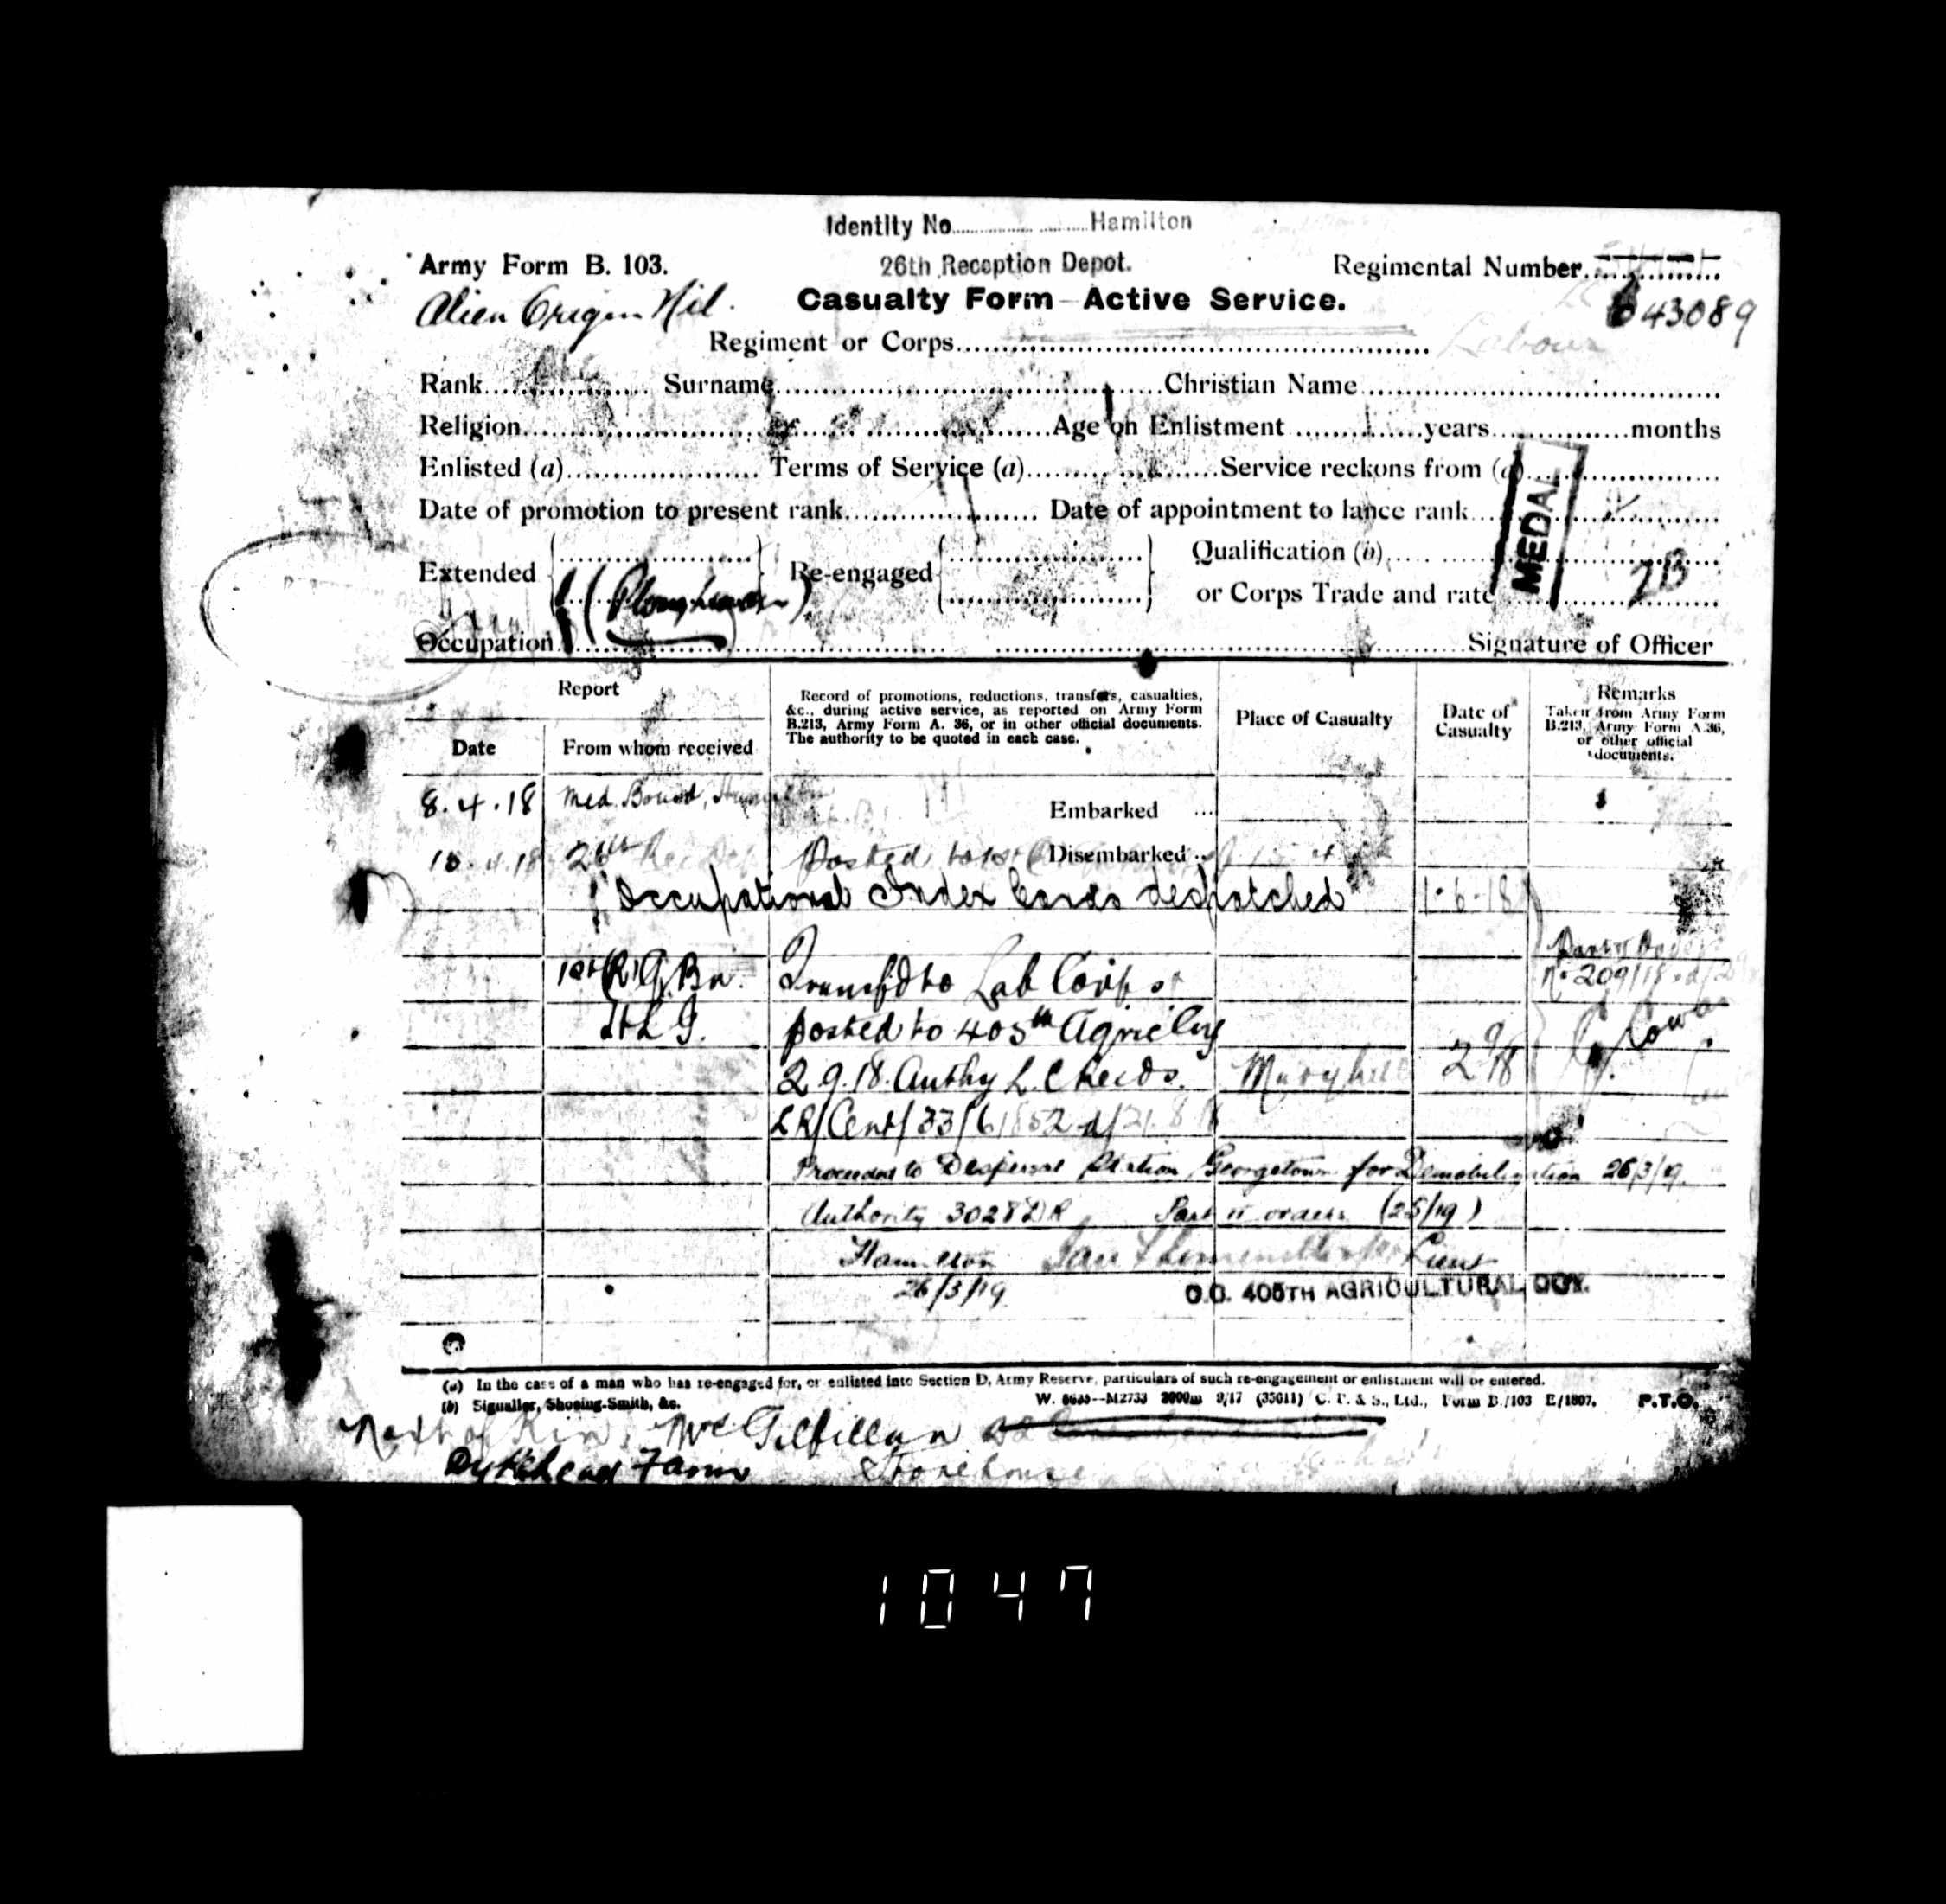 Identity No. Hamilton
Army Form B. 103. 26th Reception Depot. Regimental Number
Alien Origin Nil. Casualty Form—Active Service. 643089
Regiment or Corps Labour
Rank Surname Christian Name
Religion Age on Enlistment years months
Enlisted (a) Terms of Service (a) Service reckons from (a)
Date of promotion to present rank Date of appointment to lance rank
MEDAL
Extended Re-engaged Qualification (b)
(Ploughman) or Corps Trade and rate 2B
Occupation Signature of Officer
Report
Date From whom received
Record of promotions, reductions, transfers, casualties,
&c., during active service, as reported on Army Form
B.213, Army Form A. 36, or in other official documents.
The authority to be quoted in each case.
Place of Casualty
Date of
Casualty
Remarks
Taken from Army Form
B.213, Army Form A.36,
or other official
documents.
8.4.18 Med. Board, Embarked
4.18 26th Posted to 1st Disembarked
Occupational Index Cards despatched 1.6.18
Part II Order
1st (R) G. Bn. Transfd to Lab Corps No 209/18
H.L.I. posted to 405th Agric Coy
2.9.18. Authy L.C Recds. Maryhill 2/9/18
LR/Cent/33/6/1852 d/21.8.18
Proceeded to Dispersal Station Georgetown for Demobilization 26/3/19.
Authority 3028 DR Part II orders (25/19)
Hamilton Lieut
26/3/19 O.C. 405TH AGRICULTURAL COY.
(a) In the case of a man who has re-engaged for, or enlisted into Section D, Army Reserve, particulars of such re-engagement or enlistment will be entered.
(b) Signaller, Shoeing-Smith, &c. M2733 2000m 9/17 (35611) C. P. & S., Ltd., Form B./103 E/1807. P.T.O.
Next of Kin, Mrs Gilfillan
Dykehead Farm Stonehouse
1047